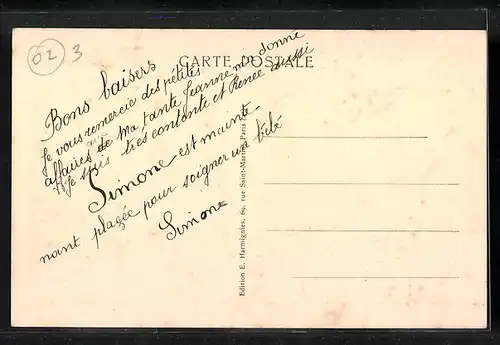 02 3
CARTE POSTALE
Bons baisers
Je vous remercie des petites
affaires que ma tante Jeanne ma donné
Je suis très contente et Renée aussi
Simone est mainte-
nant plaçée pour soigner un bébé
Simone
Edition E. Harmignies, 69, rue Saint-Martin, Paris